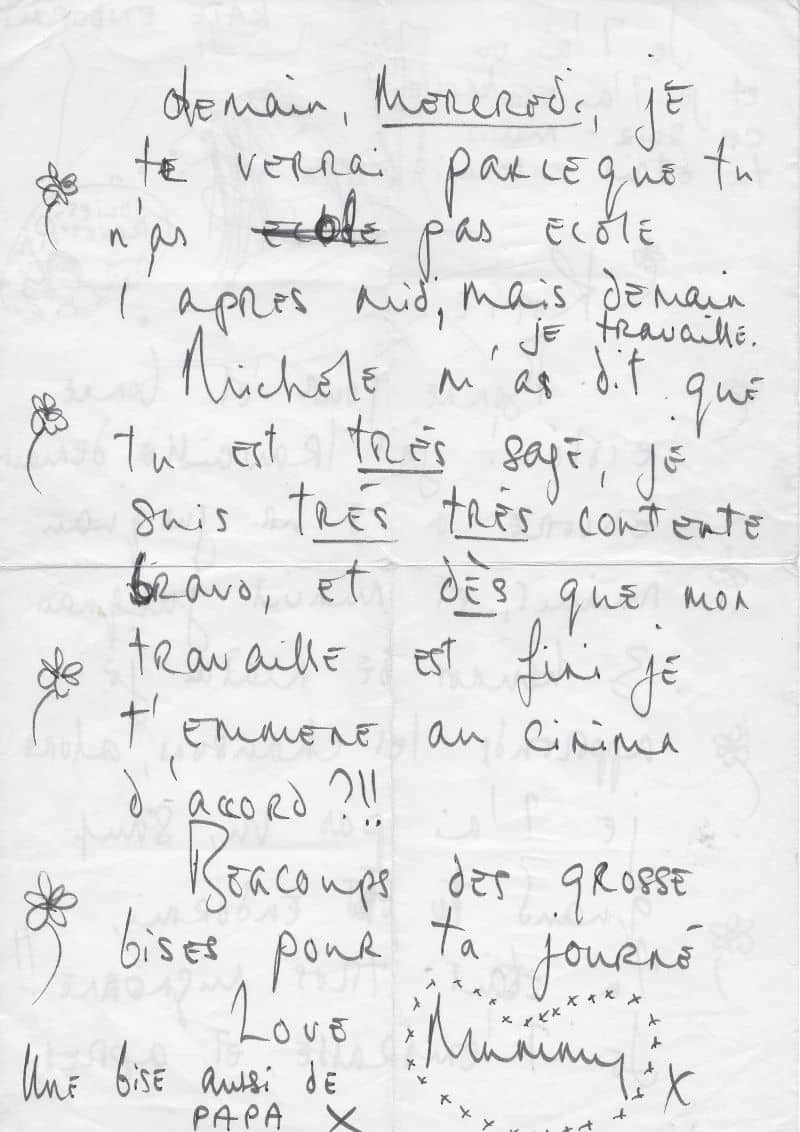 demain, Mercredi, je
te verrai parceque tu
n'as ecole pas ecole
l apres midi, mais demain
, je travaille.
Michéle m'as dit que
tu est très sage, je
suis très très contente
bravo, et dès que mon
travaille est fini je
t'emmene au cinima
d'accord ?!!
Beacoups des grosse
bises pour ta journé
Love
Mummy x
Une bise aussi de
PAPA X